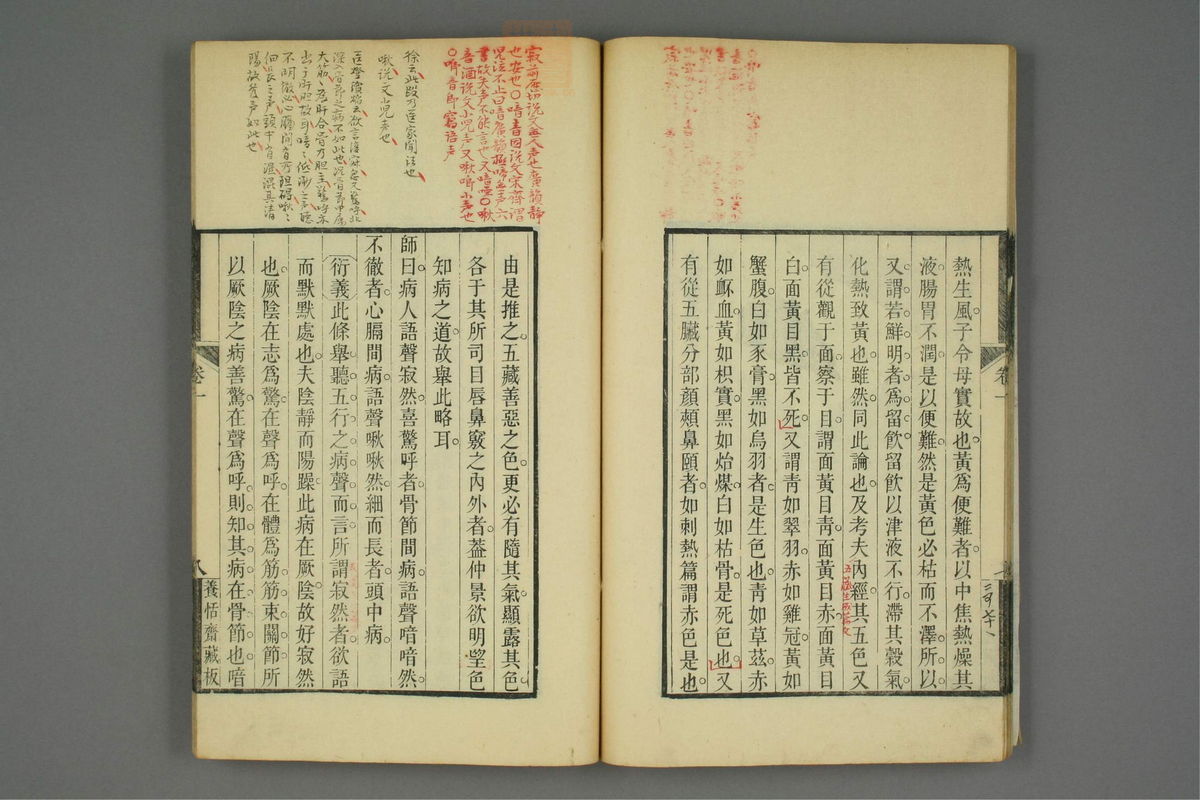 熱生風子令母實故也黃爲便難者以中焦熱燥其
液腸胃不潤是以便難然是黃色必枯而不澤所以
又謂若鮮明者爲留飲留飲以津液不行滯其穀氣
化熱致黃也雖然同此論也及考夫內經其五色又
有從觀于面察于目謂面黃目靑面黃目赤面黃目
白面黃目黑皆不死又謂靑如翠羽赤如雞冠黃如
蟹腹白如豕膏黑如烏羽者是生色也靑如草茲赤
如衃血黃如枳實黑如炲煤白如枯骨是死色也又
有從五臟分部顏頰鼻頤者如刺熱篇謂赤色是也
卷一
由是推之五藏善惡之色更必有隨其氣顯露其色
各于其所司目唇鼻竅之內外者葢仲景欲明望色
知病之道故舉此略耳
師曰病人語聲寂然喜驚呼者骨節間病語聲喑喑然
不徹者心膈間病語聲啾啾然細而長者頭中病
衍義此條舉聽五行之病聲而言所謂寂然者欲語
而默默處也夫陰靜而陽躁此病在厥陰故好寂然
也厥陰在志爲驚在聲爲呼在體爲筋筋束關節所
以厥陰之病善驚在聲爲呼則知其病在骨節也喑
卷一
八
養恬齋藏板
寂前歷切説文無人声也廣韻靜
也安也〇喑音因説文宋齊謂
児泣不止曰喑廣韻極啼無声六
書故失声不能言也又喑啞〇啾
音酒説文小児声又啾啣小声也
徐云此段乃医家聞法也
啾説文小児声也